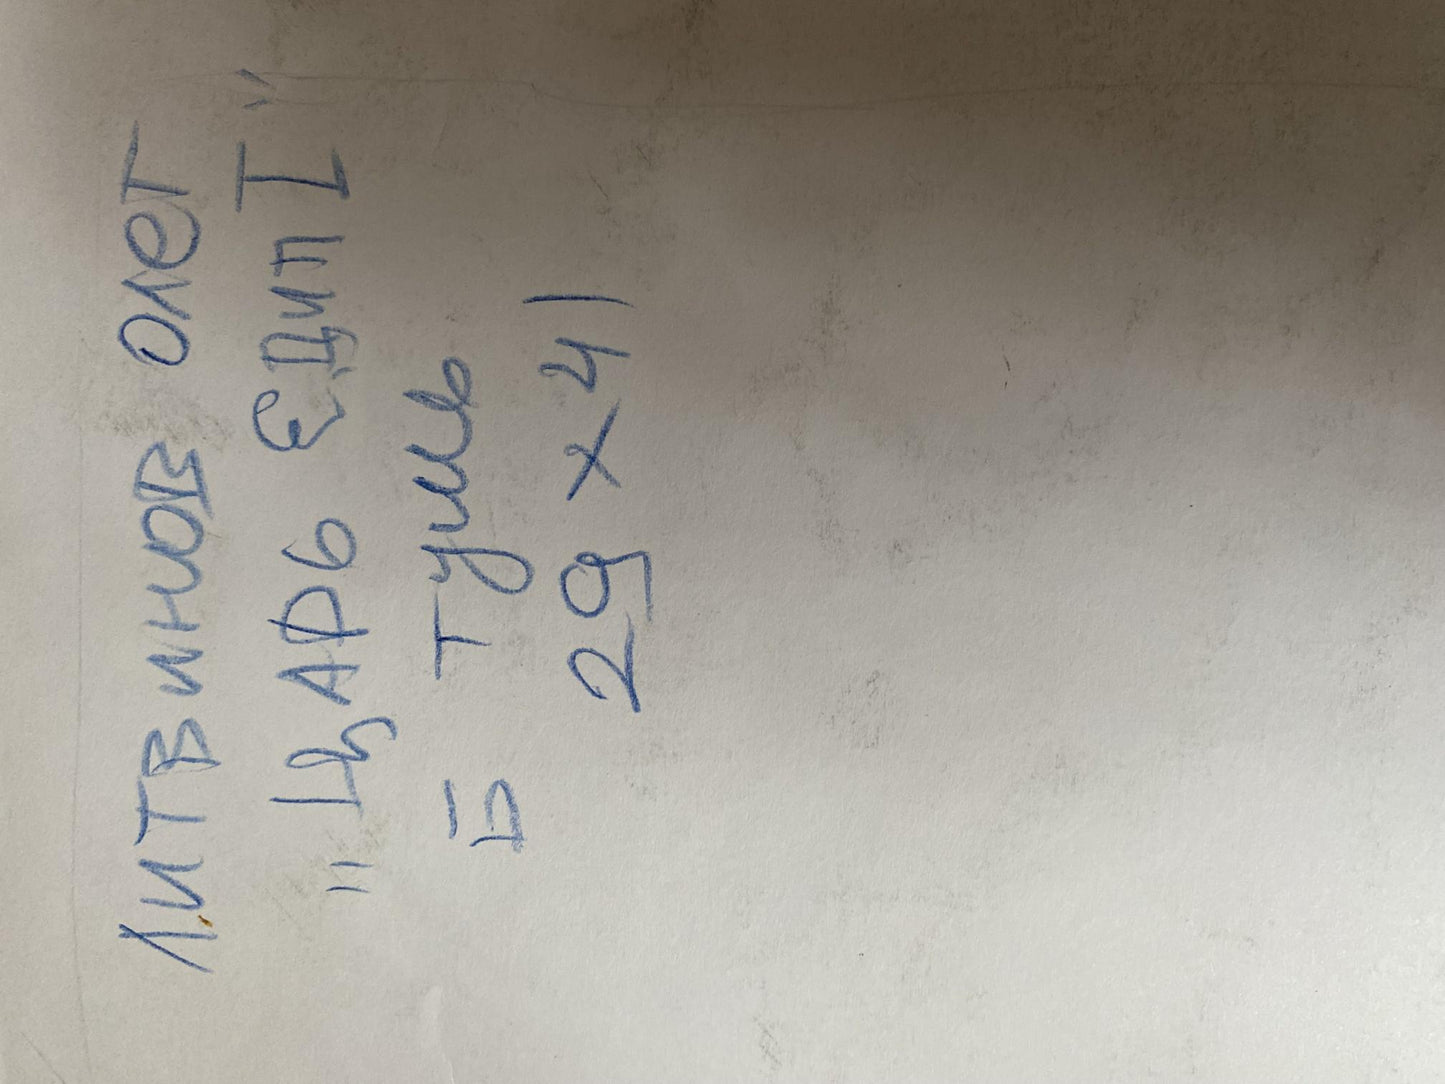 ЛИТВИНОВ ОЛЕГ
"ЦАРЬ ЕДИП I"
Б тушь
29 x 41